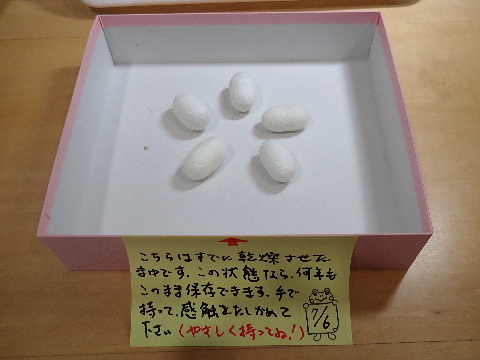 こちらはすでに乾燥させた
まゆです。この状態なら、何年も
このまま保存できます。手で
持って、感触をたしかめて
下さい(やさしく持ってね！)
7/6